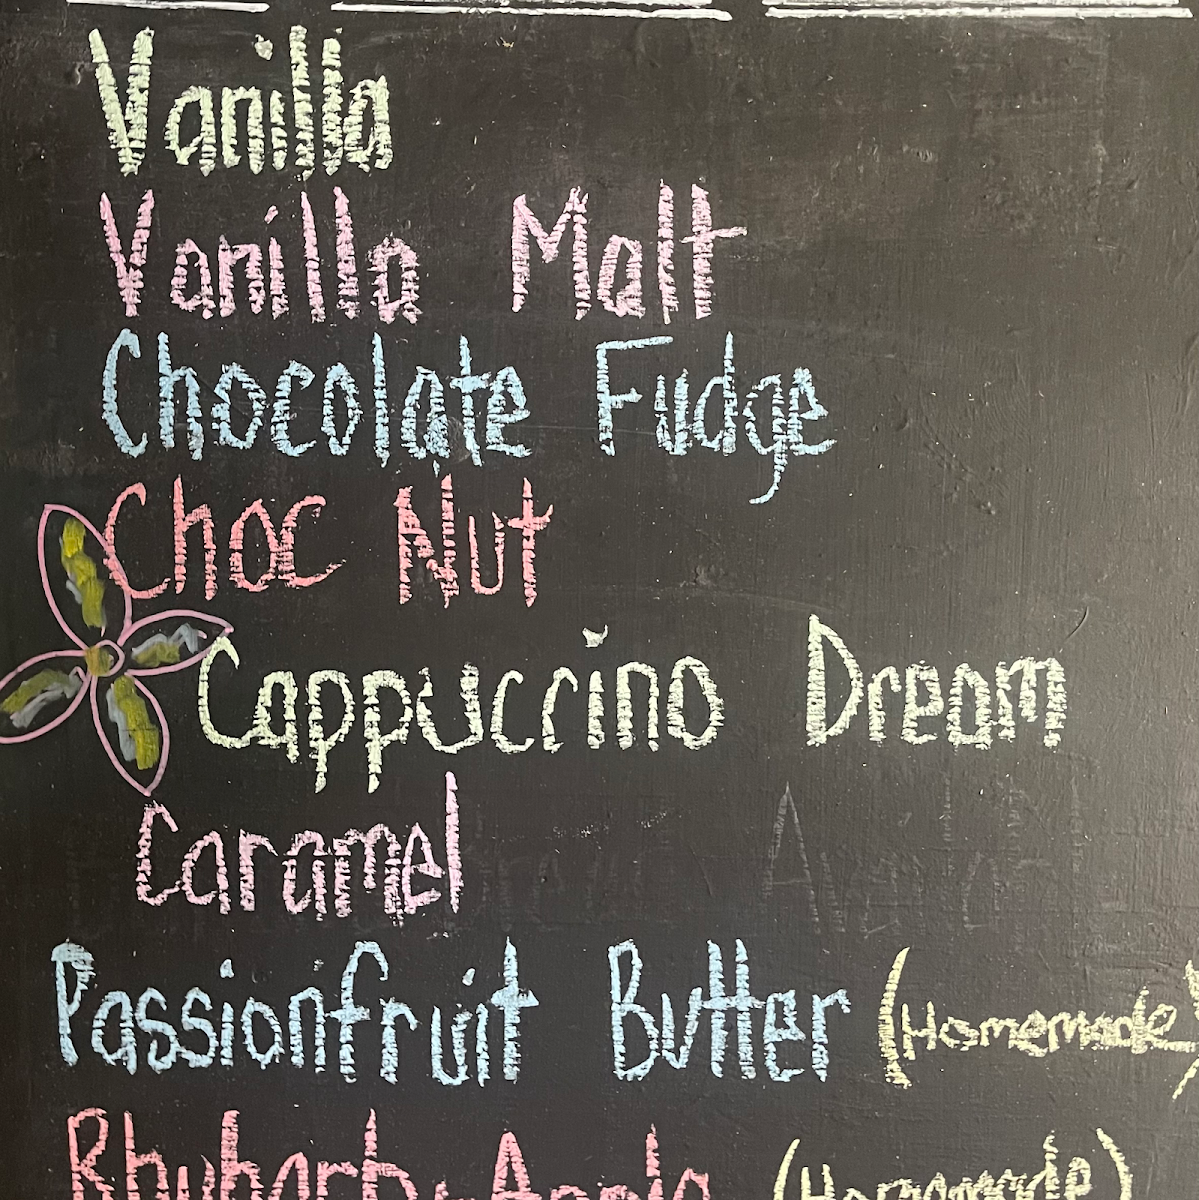 Vanilla
Vanilla Malt
Chocolate Fudge
Choc Nut
Cappuccino Dream
Caramel
Passionfruit Butter (Homemade)
Rhubarb Apple (Homemade)